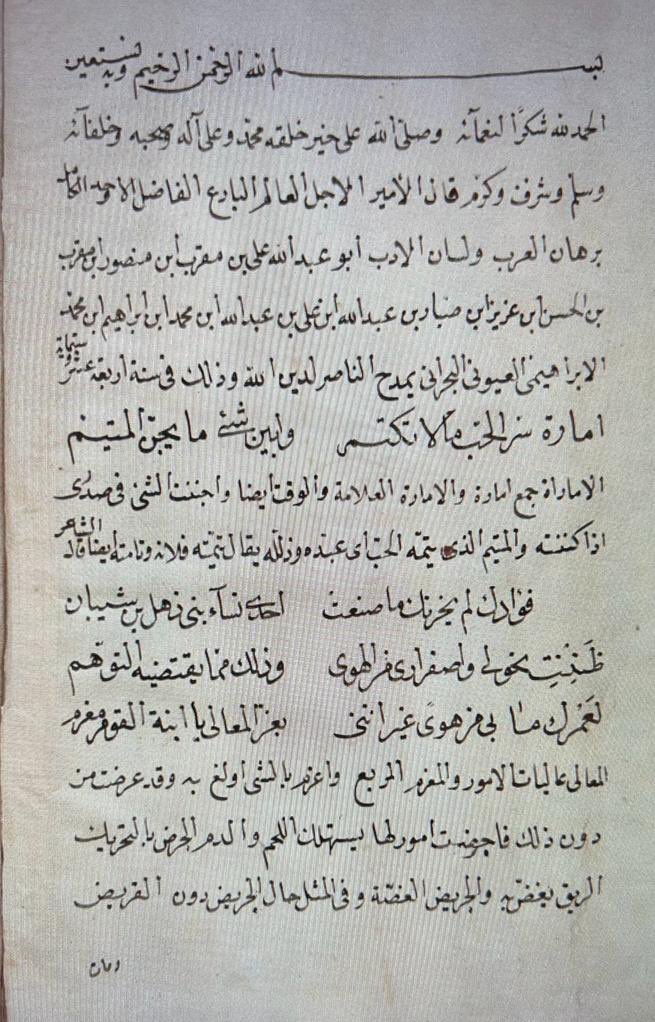 بسم الله الرحمن الرحيم وبه نستعين
الحمد لله شكرًا لنعمآئه وصلى الله على خير خلقه محمد وعلى آله وصحبه وخلفآئه
وسلم وشرف وكرم قال الأمير الاجل العالم البارع الفاضل الاوحد الكامل
برهان العرب ولسان الادب أبو عبد الله علي بن مقرب ابن منصور ابن مقرب
بن الحسن ابن عزيز ابن ضبار بن عبد الله ابن علي بن عبد الله ابن محمد ابن ابراهيم ابن محمد
الابراهيمي العيوني البحراني يمدح الناصر لدين الله وذلك في سنة أربعة عشر وستماية
امارة سر الحب ما لا تكتم وابين شئ ما يجن المتيم
الاماراة جمع امارة والامارة العلامة والوقت ايضا واجننت الشئ في صدرى
اذا كننته والمتيم الذى يتمه الحب اى عبده وذلله يقال تيمته فلانه وتامته ايضا قال الشاعر
فؤادك لم يحزنك ما صنعت احدى نسآء بنى ذهل بن شيبان
ظَنَنْتِ نحولي واصفرارى من الهوى وذلك مما يقتضيه التوهم
لعَمْرك ما بي من هوىً غير اننى بعز المعالي يا ابنة القوم مغرم
المعالى عاليات الامور والمغرم المربع واغرم بالشئ أولع به وقد عرضت من
دون ذلك فاجهضت امور لها يستهلك اللحم والدم الجرض بالتحريك
الريق يغص به والجريض الغصّة وفى المثل حال الجريض دون القريض